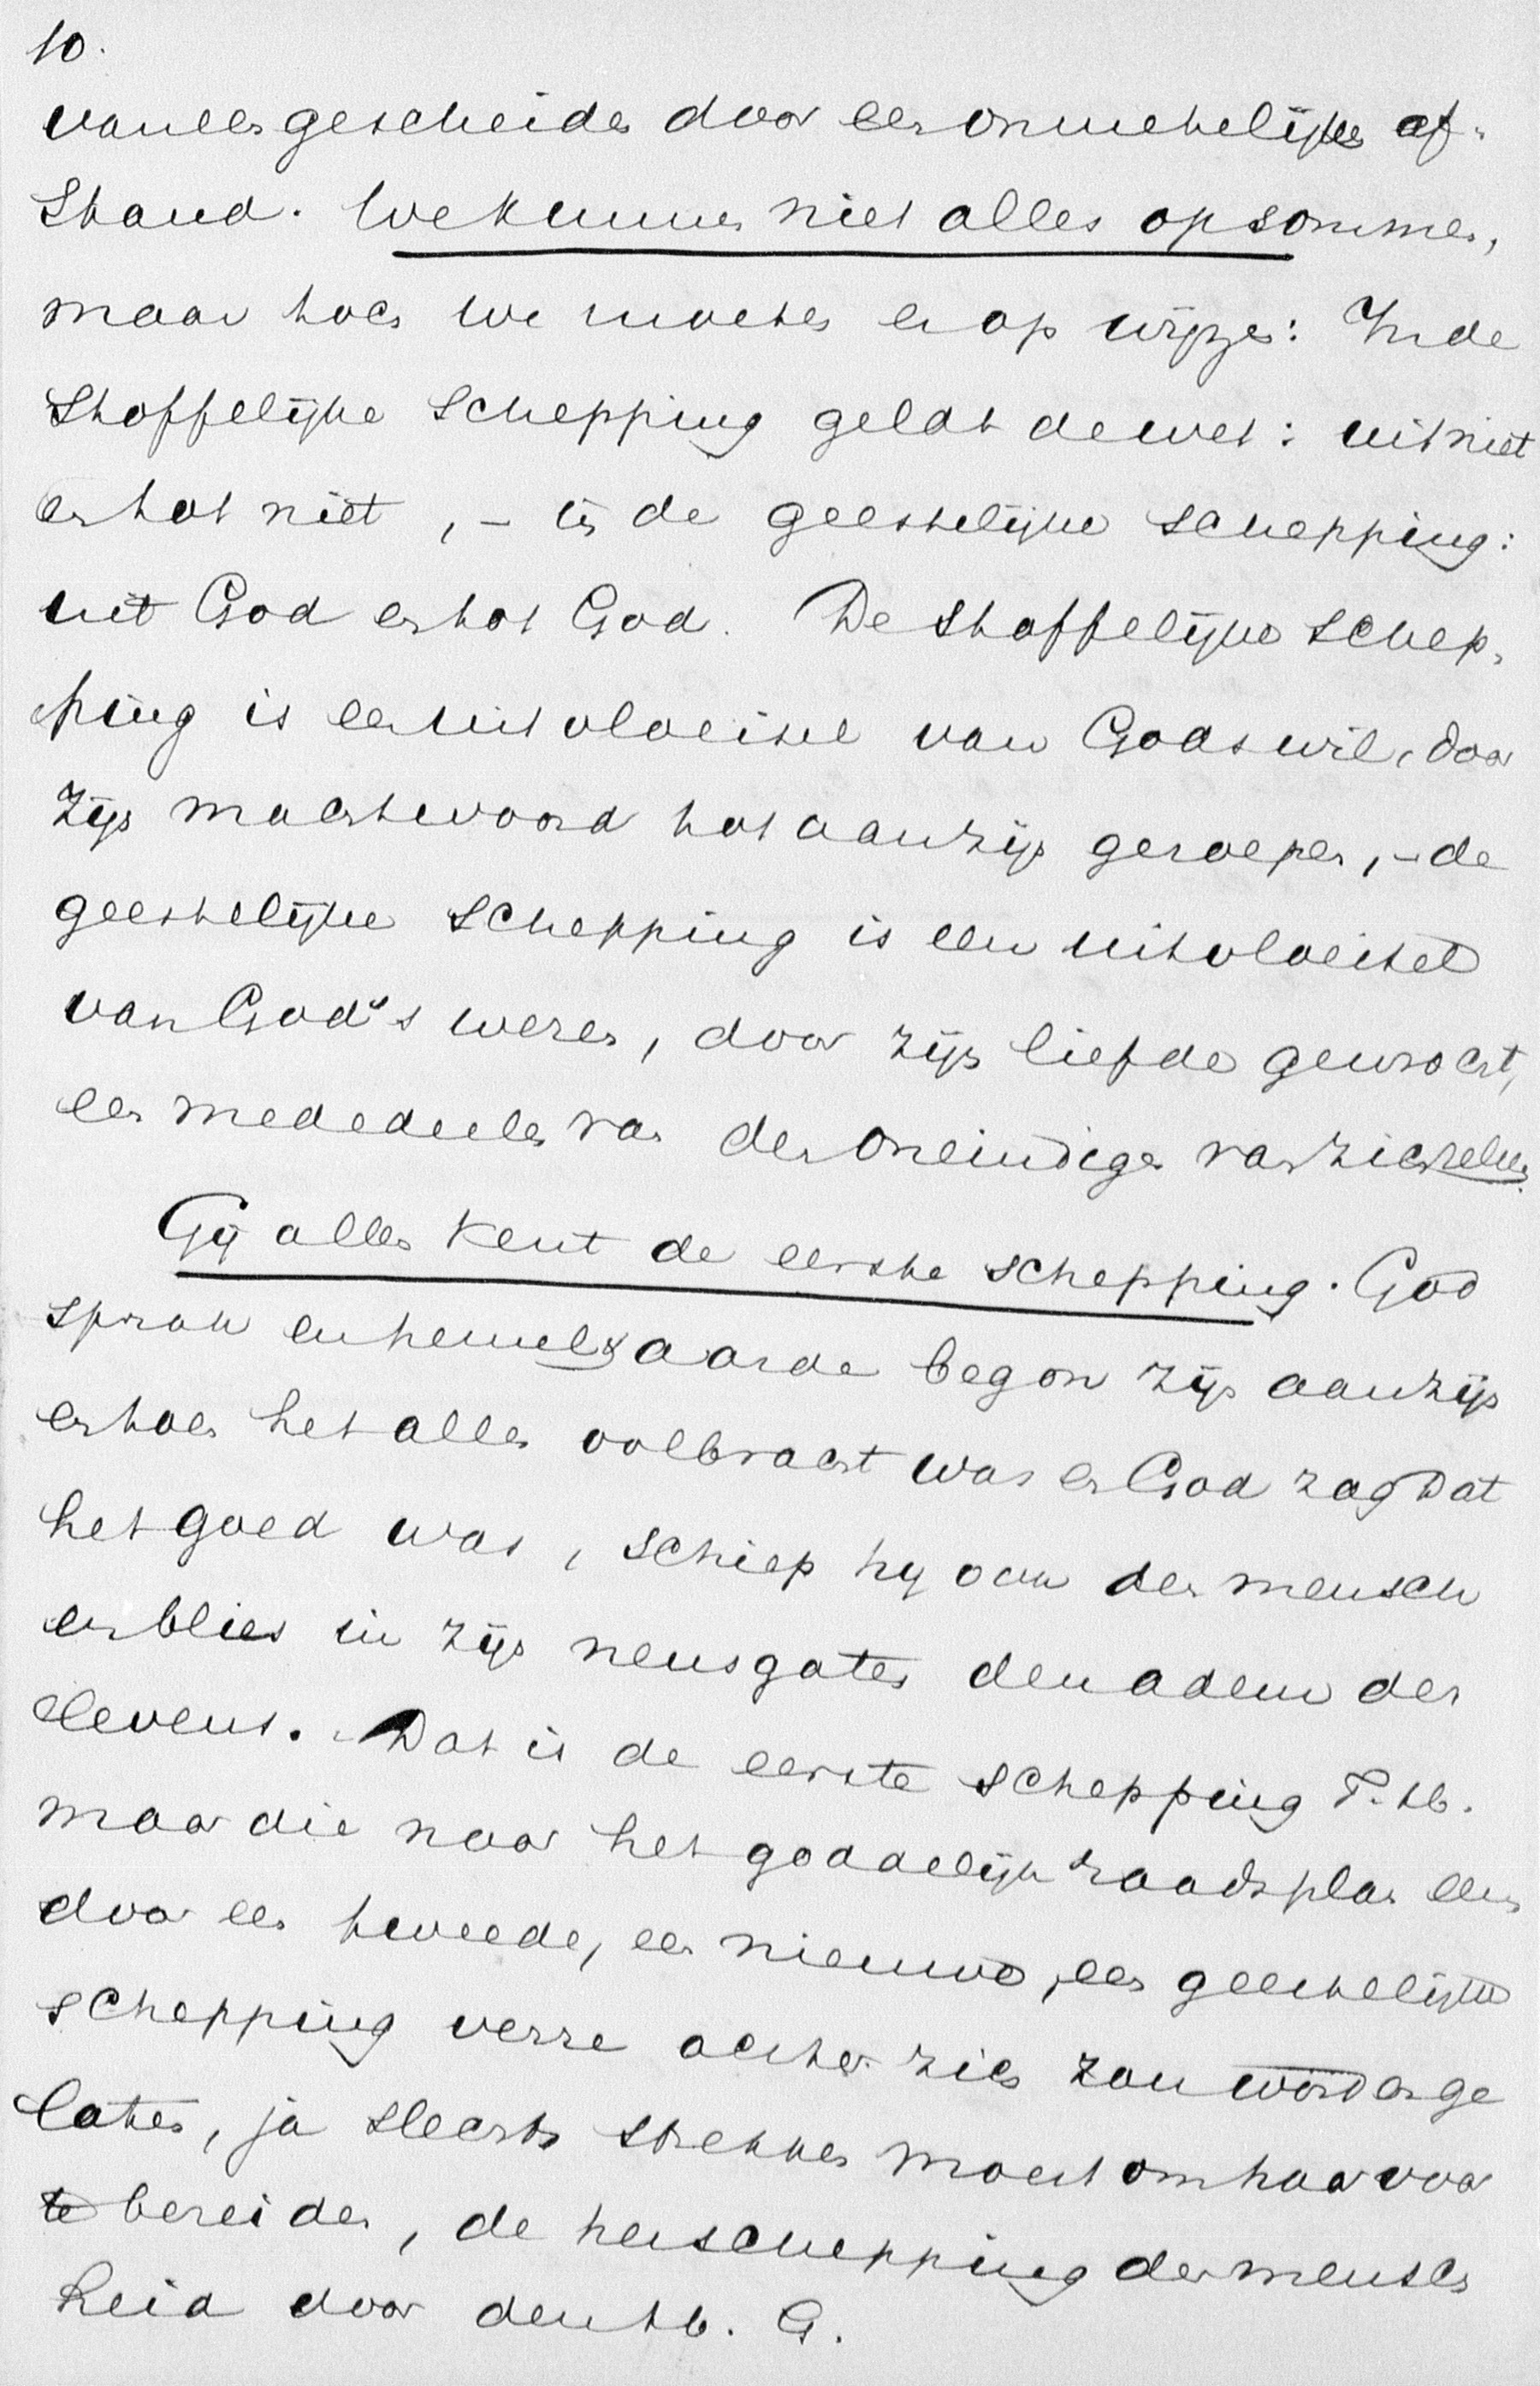 10.
vaneen gescheiden door een onmetelijken af-
stand. We kunnen niet alles opsommen,
maar toch we moeten er op wijzen: In de
stoffelijke schepping geldt de wet: uit niet
en tot niet, – in de geestelijke schepping:
uit God en tot God. De stoffelijke schep-
ping is een uitvloeisel van Gods wil, door
zijn machtwoord tot aanzijn geroepen, – de
geestelijke schepping is een uitvloeisel
van God's wezen, door zijn liefde gewrocht,
een mededeelen van den oneindigen van zichzelven.
Gij allen kent de eerste schepping. God
sprak en hemel & aarde begon zijn aanzijn
en toen het alles volbracht was en God zag dat
het goed was, schiep hij ook den mensch
en blies in zijn neusgaten den adem des
levens. Dat is de eerste schepping T. H.
maar die naar het goddelijk raadsplan eens
door een tweede, een nieuwe, een geestelijke
schepping verre achter zich zou worden ge
laten, ja slechts strekken moest om haar voor
te bereiden, de herschepping der mensch
heid door den H. G.